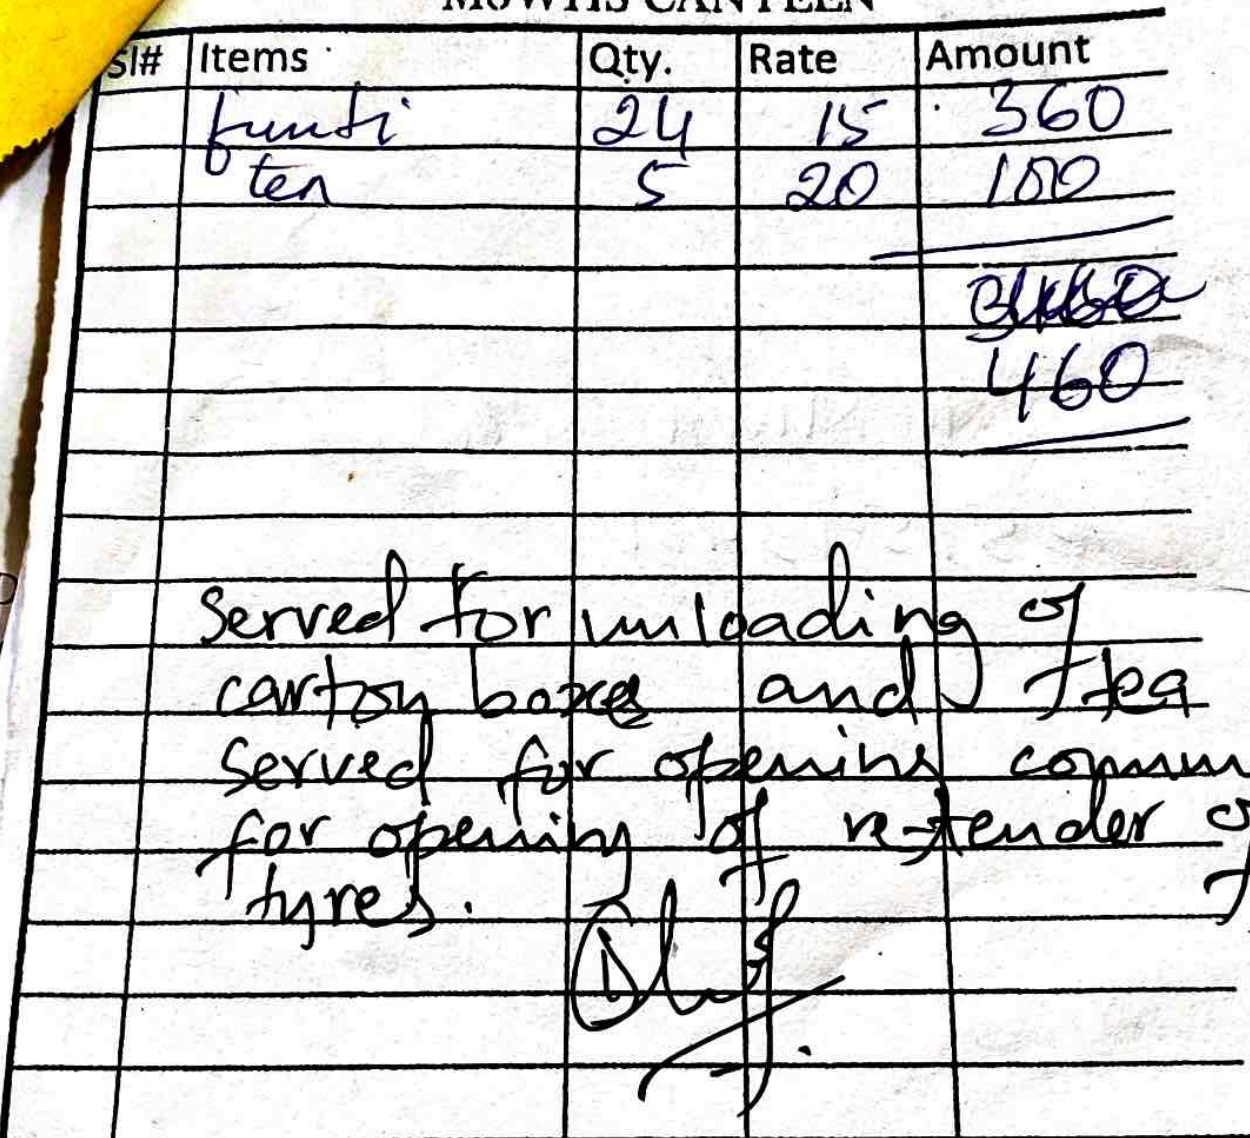 MoWHS CANTEEN
Sl# Items Qty. Rate Amount
frunti 24 15 360
tea 5 20 100
460
Served for unloading of
carton boxes and tea
served for opening comm
for opening of re-tender of
tyres.